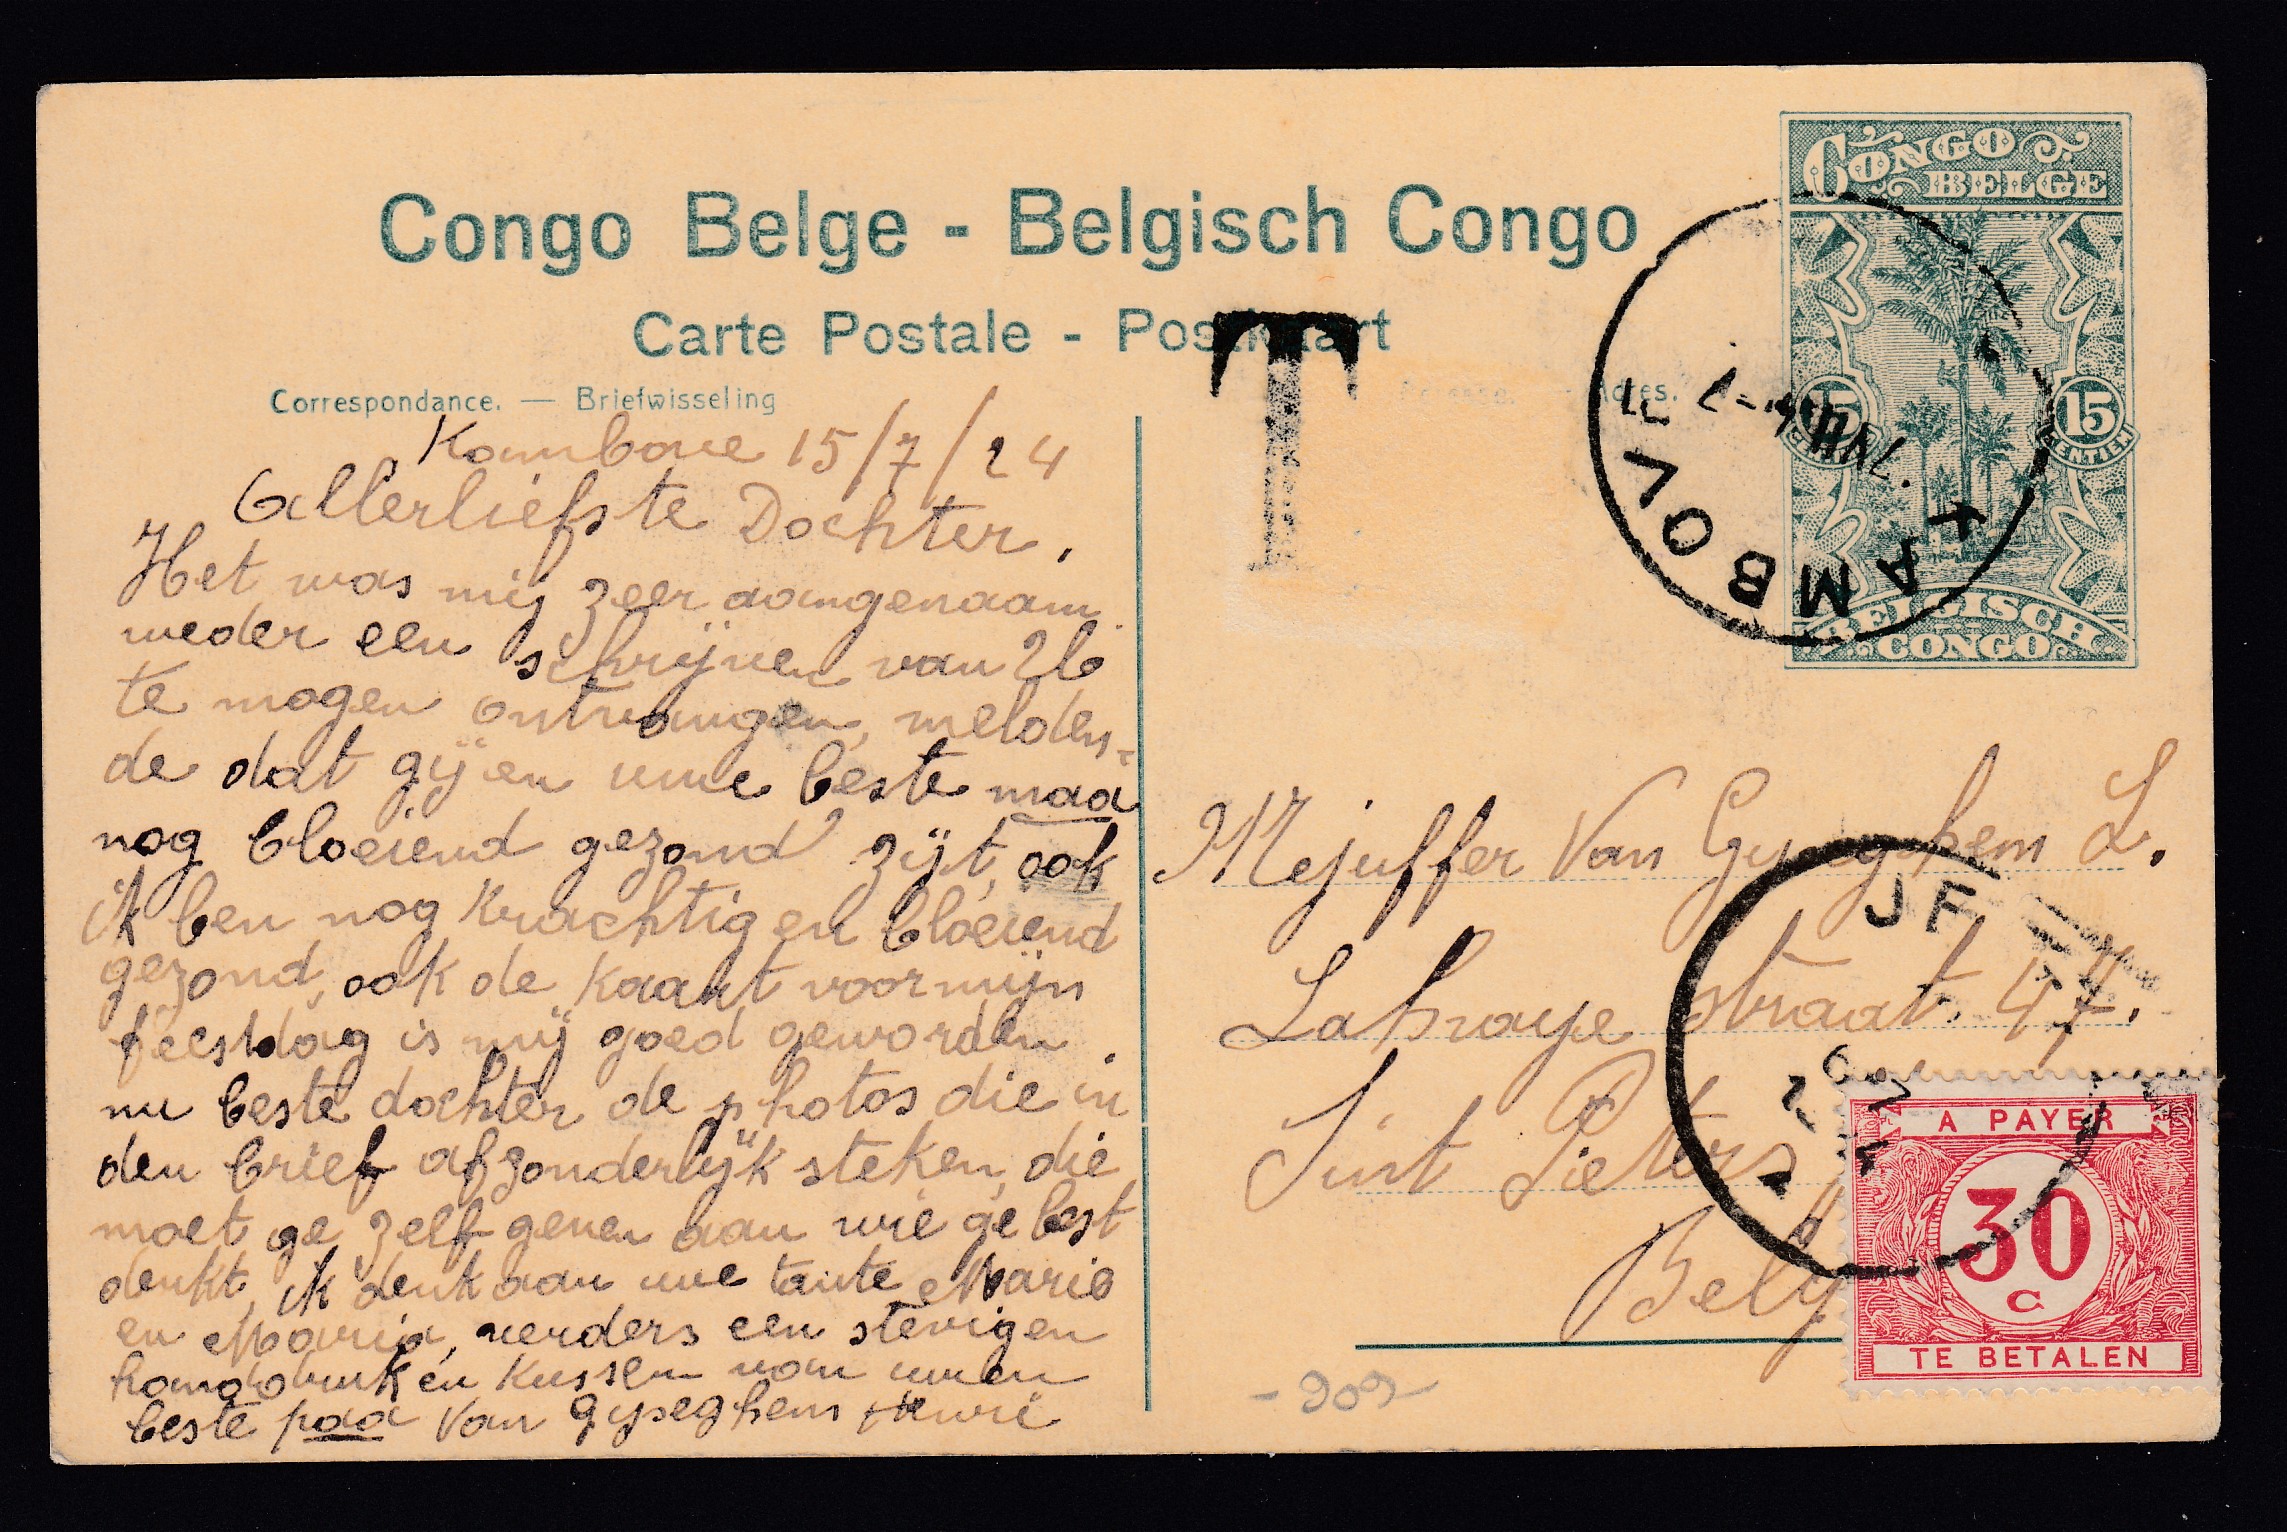 Congo Belge - Belgisch Congo
Carte Postale - Postkaart
Correspondance. — Briefwisseling
Adresse. — Adres.
T
CONGO
BELGE
15
15
CENTIEM
BELGISCH
CONGO
KAMBOVE
Kambove 15/7/24
Allerliefste Dochter,
Het was mij zeer aangenaam
weder een schrijven van Ub
te mogen ontvangen, melden-
de dat gij en uwe beste maa
nog bloeiend gezond zijt, ook
ik ben nog krachtig en bloeiend
gezond, ook de kaart voor mijn
feestdag is mij goed geworden.
nu beste dochter de photos die in
den brief afzonderlijk steken, die
moet ge zelf geven aan wie ge best
denkt, ik denk aan uwe tante Marie
en Maria, verders een stevigen
handdruk en kussen van uwen
beste paa Van Gyseghem Henri
Mejuffer Van Gyseghem L.
Lahaye straat. 47.
Sint Pieters
Belg
JF
A PAYER
30
C
TE BETALEN
-909-